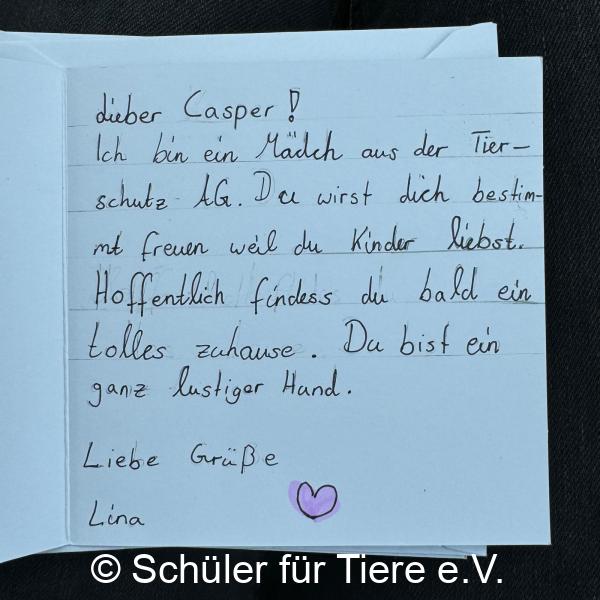 dieber Casper!
Ich bin ein Mädch aus der Tier-
schutz AG. Du wirst dich bestim-
mt freuen weil du Kinder liebst.
Hoffentlich findess du bald ein
tolles zuhause. Du bist ein
ganz lustiger Hund.
Liebe Grüße
Lina
© Schüler für Tiere e.V.